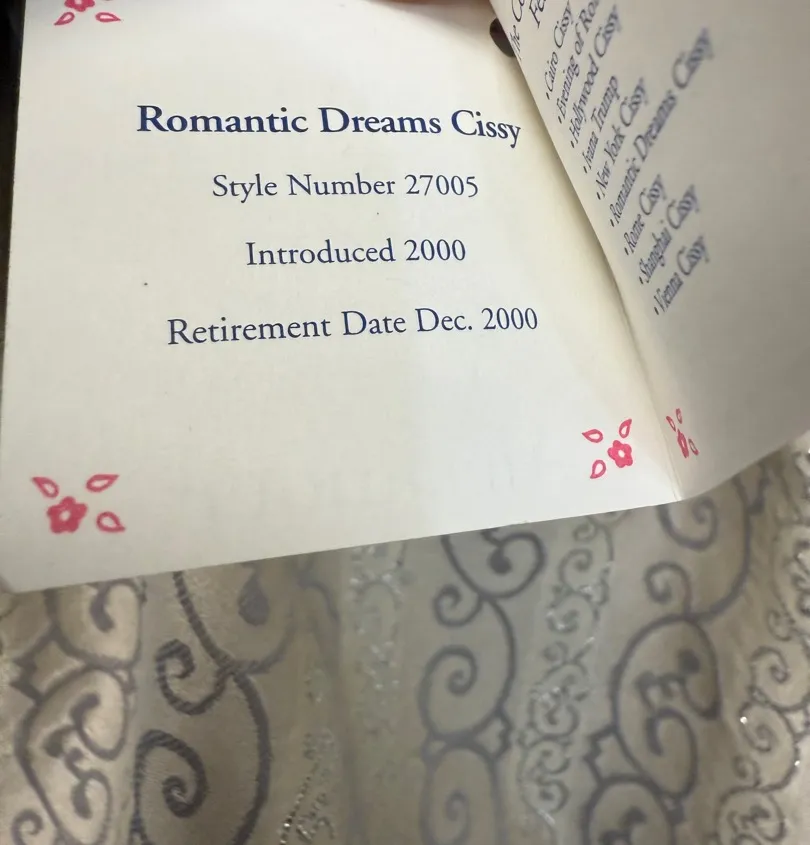 Romantic Dreams Cissy
Style Number 27005
Introduced 2000
Retirement Date Dec. 2000
The
• Cairo Cissy
• Evening of
• Hollywood Cissy
• Ivana Trump
• New York Cissy
• Romantic Dreams Cissy
• Rome Cissy
• Shanghai Cissy
• Vienna Cissy